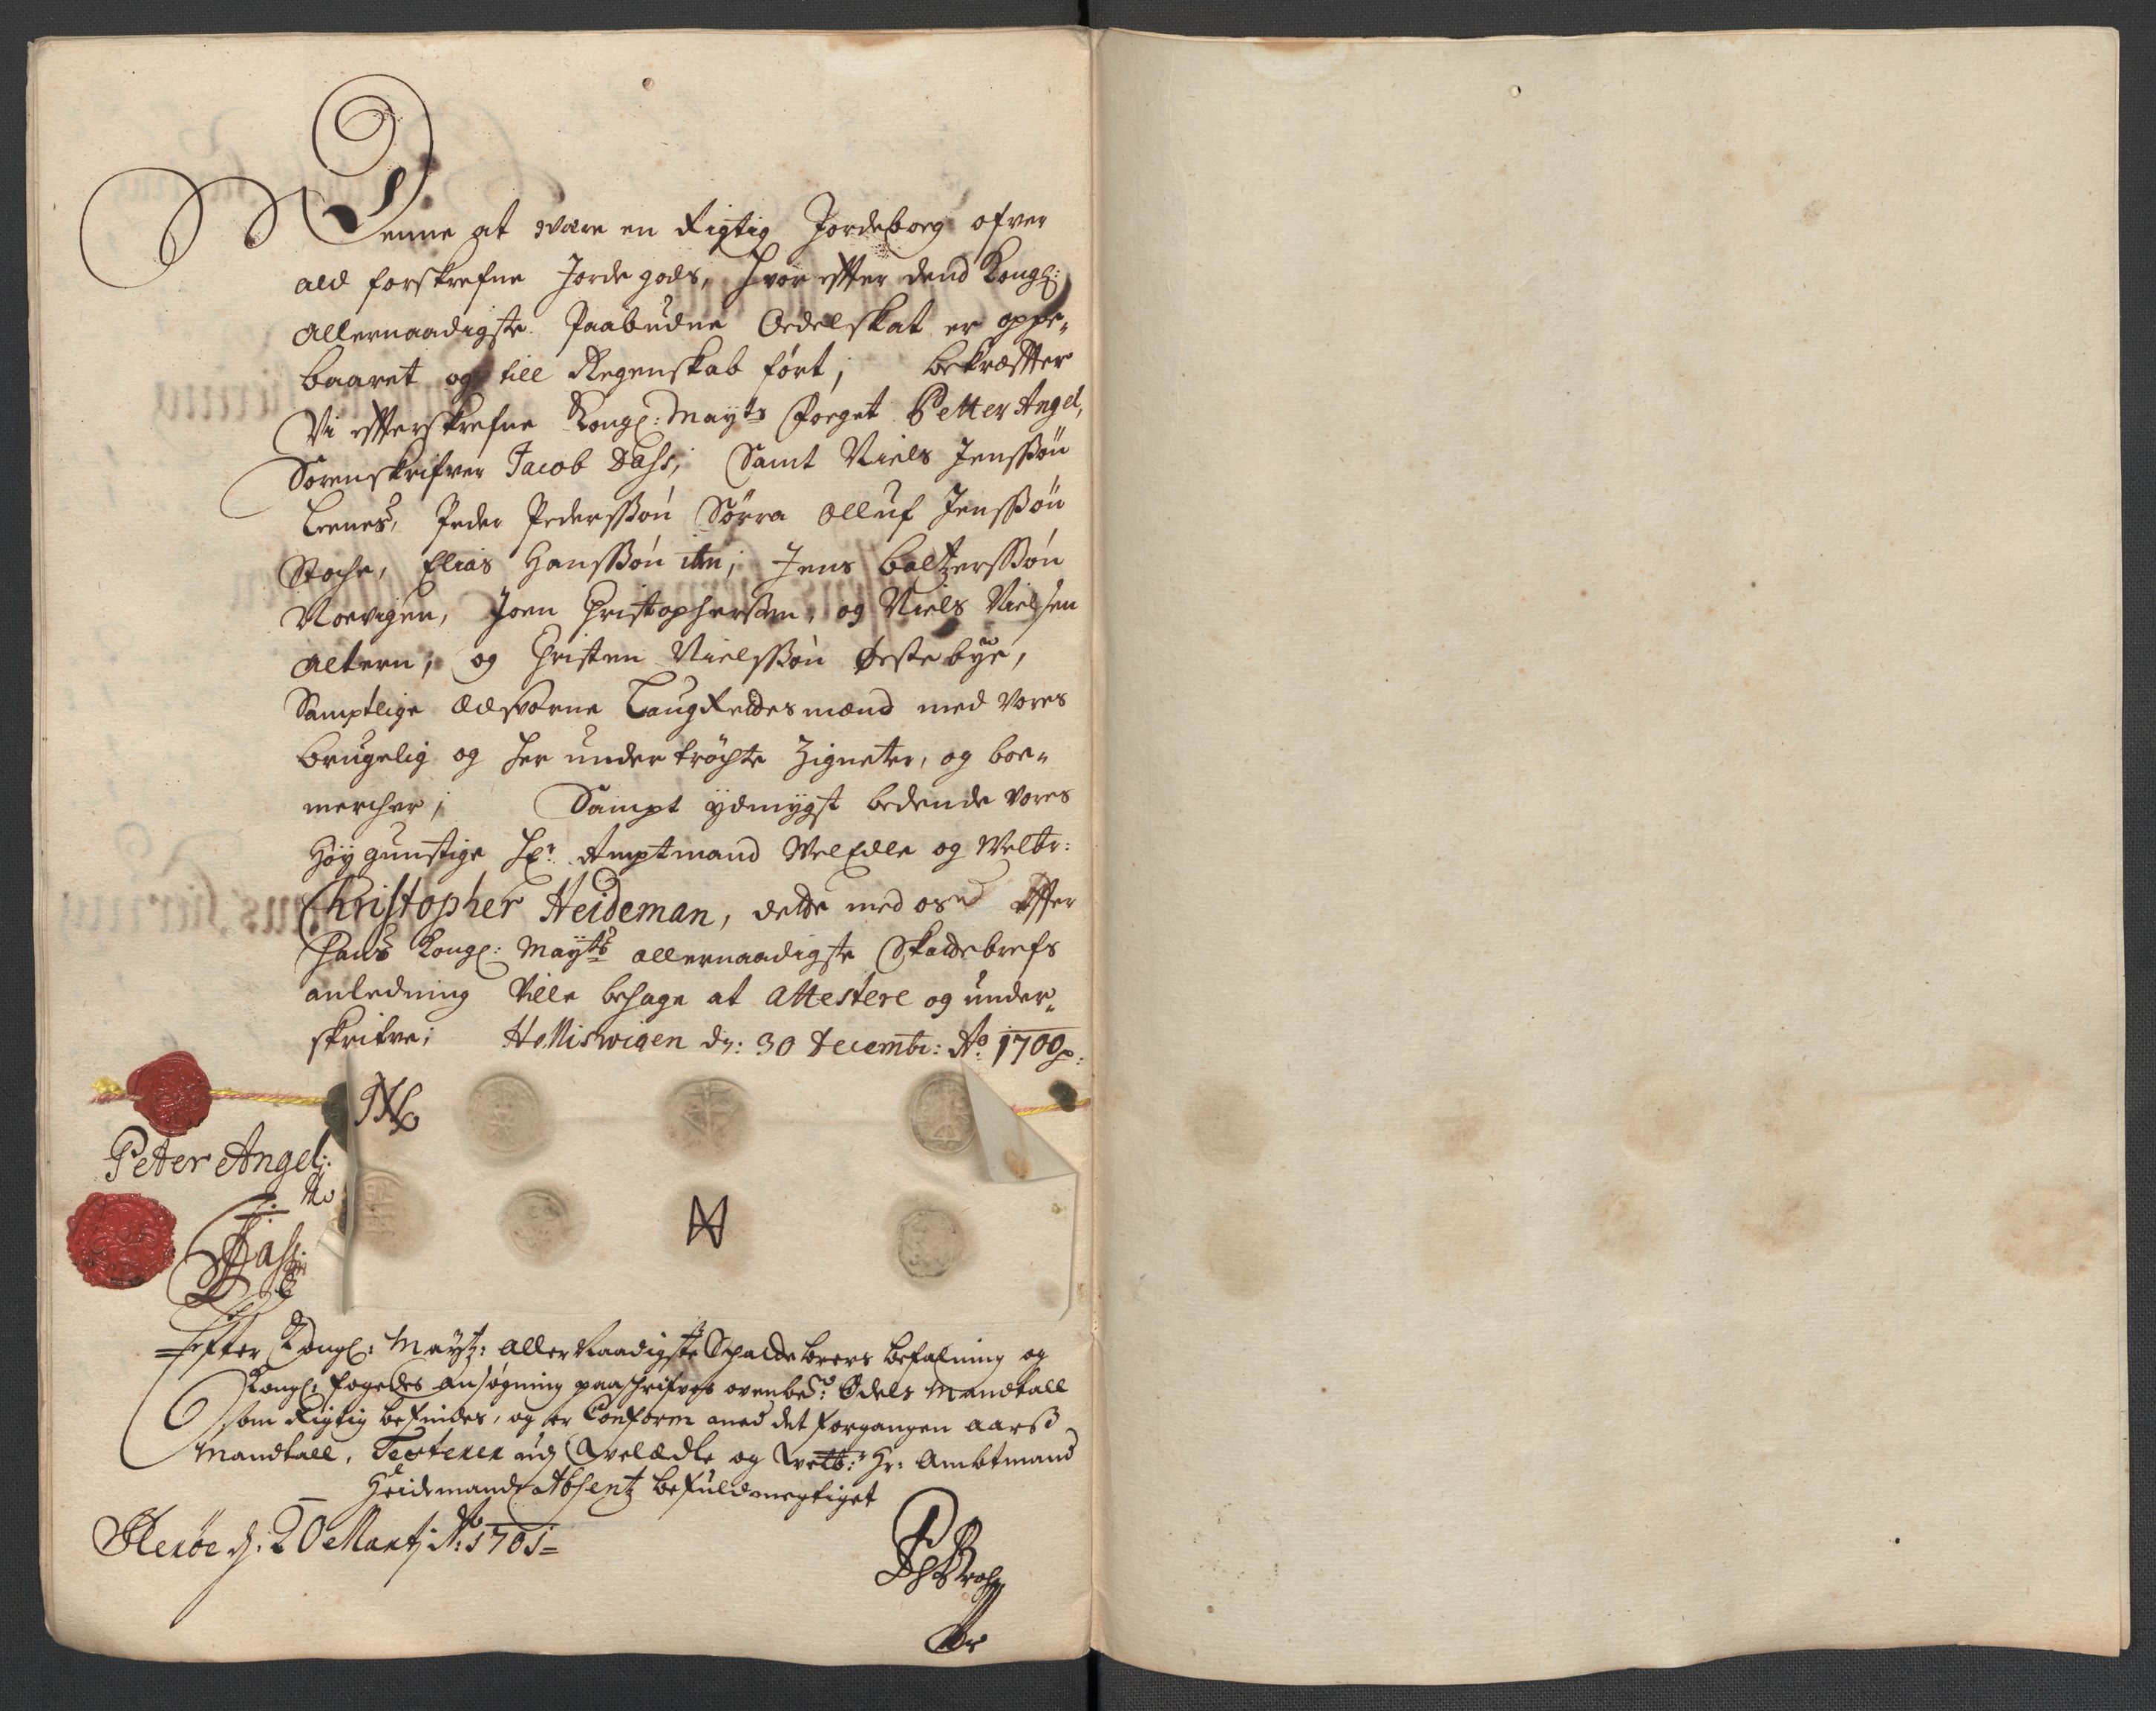 Denne at være en Rigtig Jordeboeg ofver
ald forskrefne Jorde gods, hvor effter dend Kongl:
Allernaadigste Paabudne Oedelskat er oppe„
baaret og till Regenskab ført; bekræffter
Vi effterskrefne Kongl: Mayts Foeget Petter Angel,
Sorenskrifver Jacob Dass; Samt Niels Jenssøn
Leenes, Peder Pederssøn Sørra Olluf Jenssøn
Stoche, Elias Hanssøn itm; Jens Baltzerssøn
Norvigen, Joen Christophersøn, og Niels Nielsen
Altern; og Christen Nielssøn Østebye,
Samptlige Aedsvorne Laugrettes mænd med vores
brugelig og her under tröchte Zigneter, og boe„
mercher; Sampt ydmygst bedende vores
Høy gunstige Hr: Amptmand Wel Edle og Welbr:
Christopher Heideman, dette med os effter
Hans Kongl: Mayts allernaadigste Skattebrefs
anledning Ville behage at Attestere og under„
skrifve; Holliswigen dn: 30 Decembr: Ao 1700
Peter Angel:
Dass
Effter Kongl: Maytz: Aller Naadigste Schatte brevs befalning og
Kongl: fogedes ansøgning paaschrifves ovenbed: Odels Mandtall
som Rigtig befindes, og er Conform med det forgangen aars
Mandtall, Testerer udj Welædle og Welb: Hr: Ambtmand
Heidemands Absentz befuldmegtiget
Herøe d: 20 Martj Ao: 1701